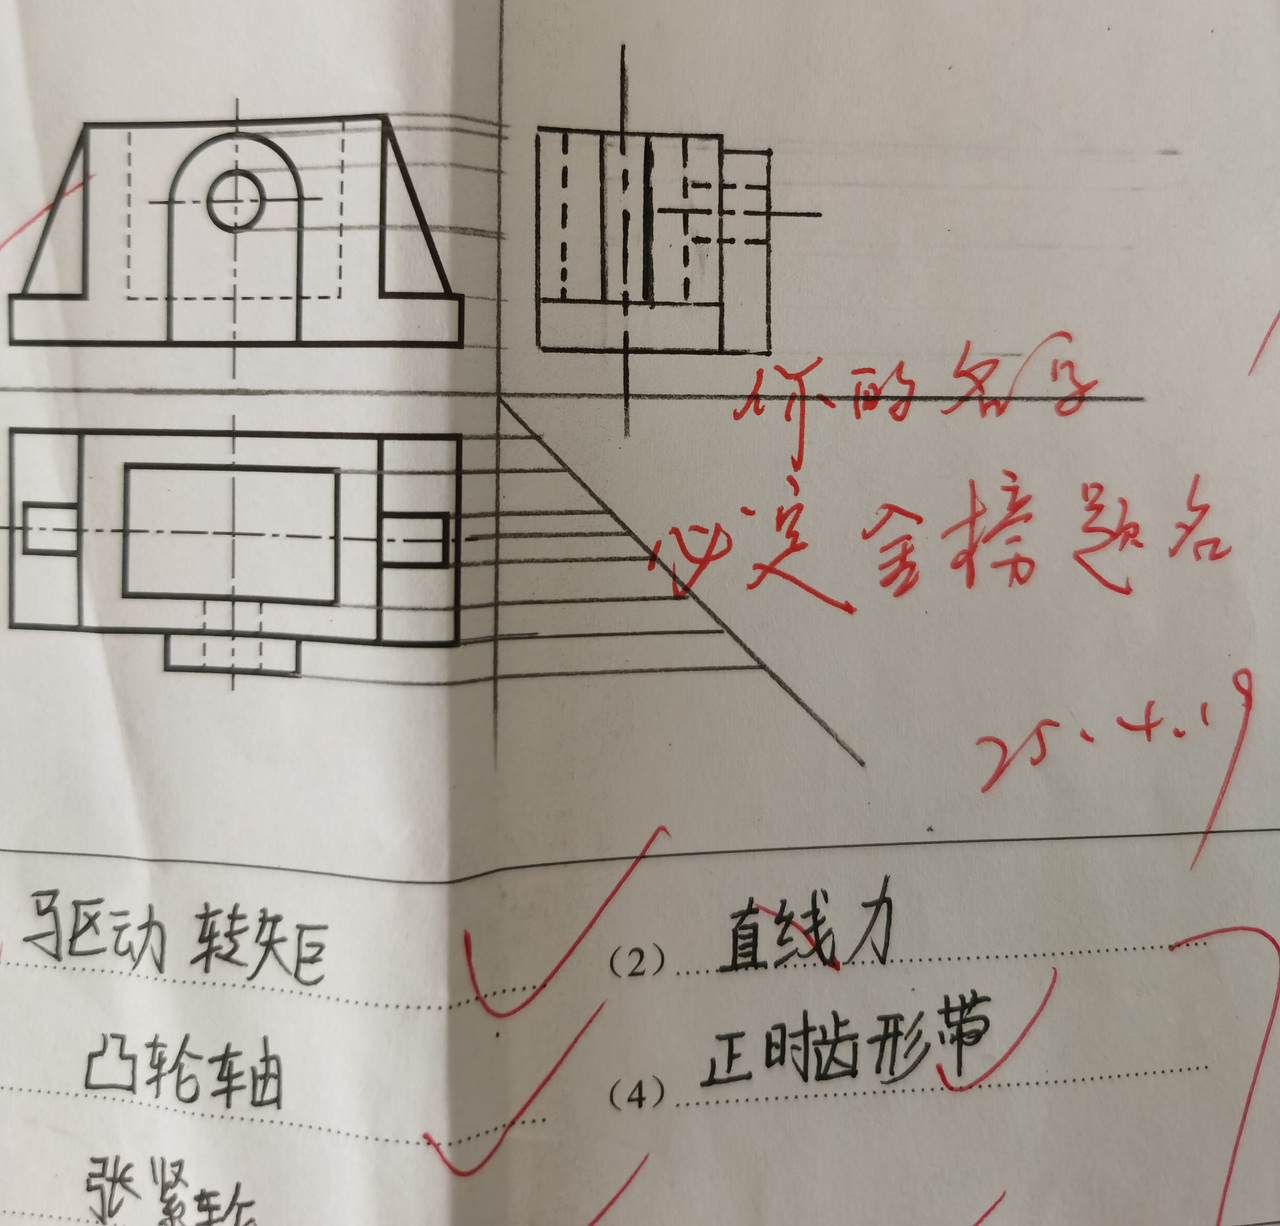 你的名字
必定金榜题名
25.4.19
驱动转矩
(2) 直线力
凸轮轴
(4) 正时齿形带
张紧轮